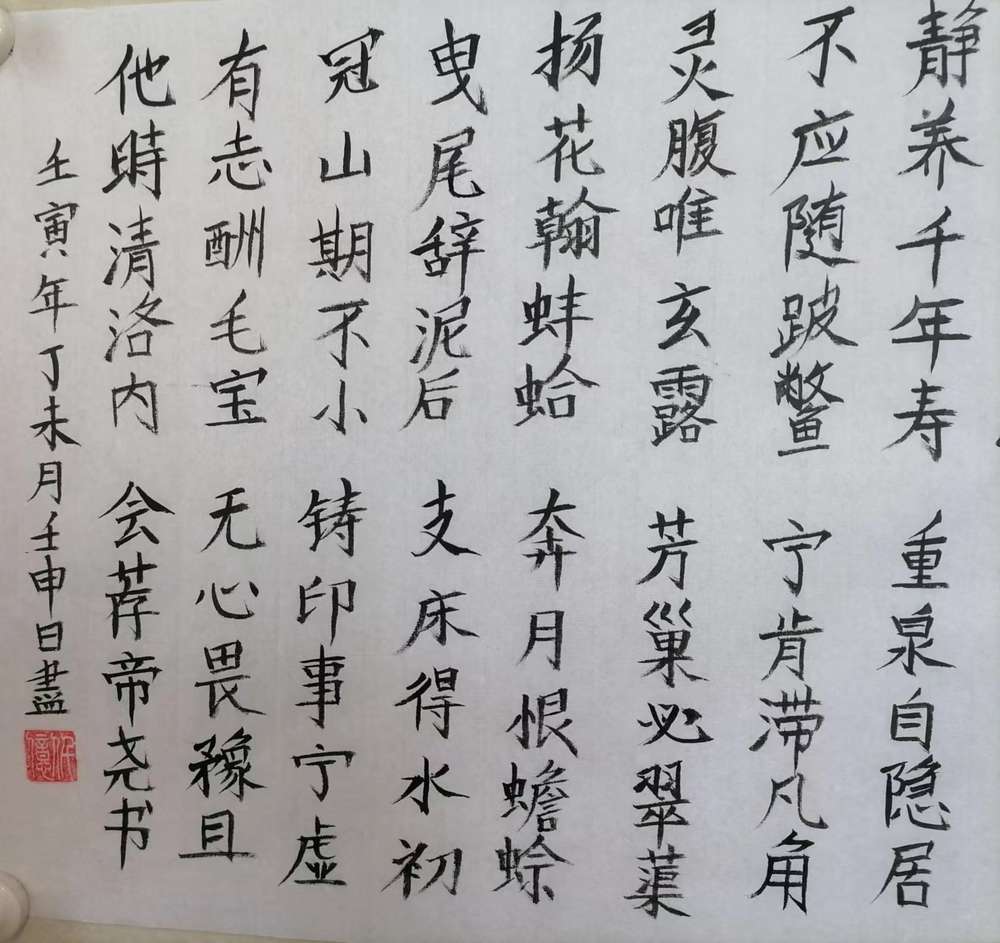 静养千年寿重泉自隐居
不应随跛鳖宁肯滞凡角
灵腹唯玄露芳巢必翠蕖
扬花翰蚌蛤奔月恨蟾蜍
曳尾辞泥后支床得水初
冠山期不小铸印事宁虚
有志酬毛宝无心畏豫且
他時清洛内会荐帝尧书
壬寅年丁未月壬申日